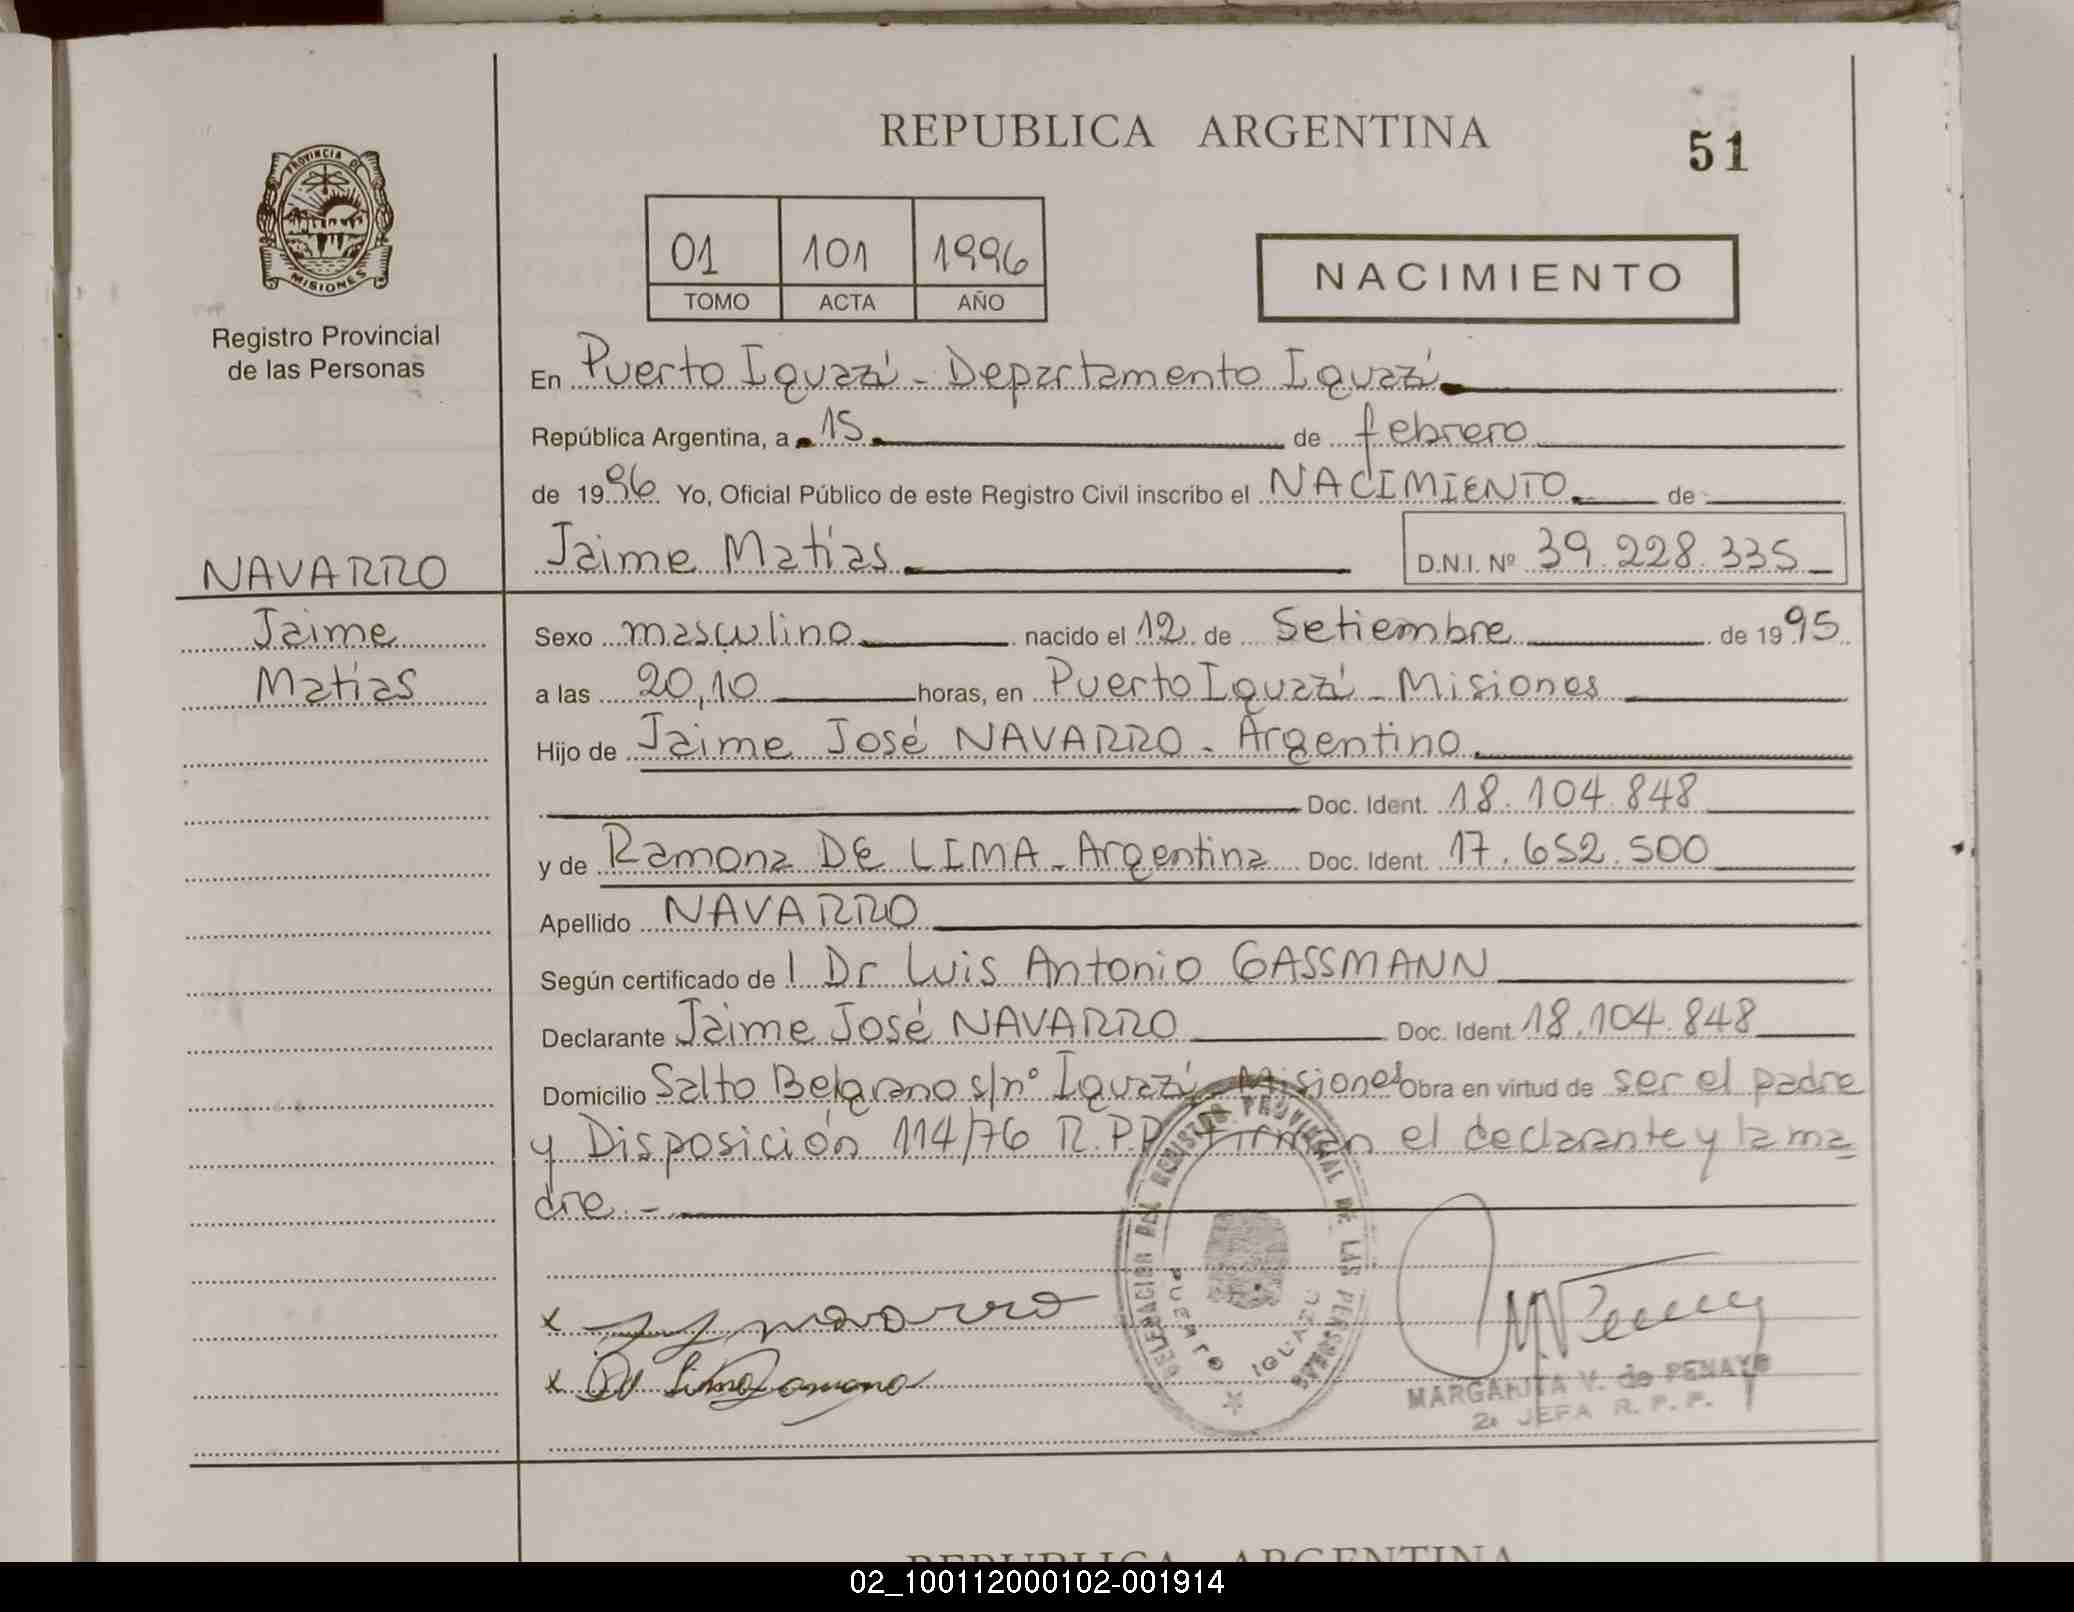 REPUBLICA ARGENTINA
51
PROVINCIA DE
MISIONES
Registro Provincial
de las Personas
01 101 1996
TOMO ACTA AÑO
NACIMIENTO
En Puerto Iguazú - Departamento Iguazú
República Argentina, a 15 de febrero
de 1996 Yo, Oficial Público de este Registro Civil inscribo el NACIMIENTO de
Jaime Matías D.N.I. Nº 39.228.335
NAVARRO
Jaime
Matías
Sexo masculino nacido el 12 de Setiembre de 1995
a las 20,10 horas, en Puerto Iguazú - Misiones
Hijo de Jaime José NAVARRO - Argentino
Doc. Ident. 18.104.848
y de Ramona DE LIMA - Argentina Doc. Ident. 17.652.500
Apellido NAVARRO
Según certificado de l Dr Luis Antonio GASSMANN
Declarante Jaime José NAVARRO Doc. Ident. 18.104.848
Domicilio Salto Belgrano s/nº Iguazú Misiones Obra en virtud de ser el padre
y Disposición 114/76 R.P.P. Firman el declarante y la ma
dre -
DELEGACION DEL REGISTRO PROVINCIAL DE LAS PERSONAS
PUERTO IGUAZU
x J J navarro
x De Lima Ramona
MARGARITA V. de PENAYO
2a JEFA R. P. P.
REPUBLICA ARGENTINA
02_100112000102-001914